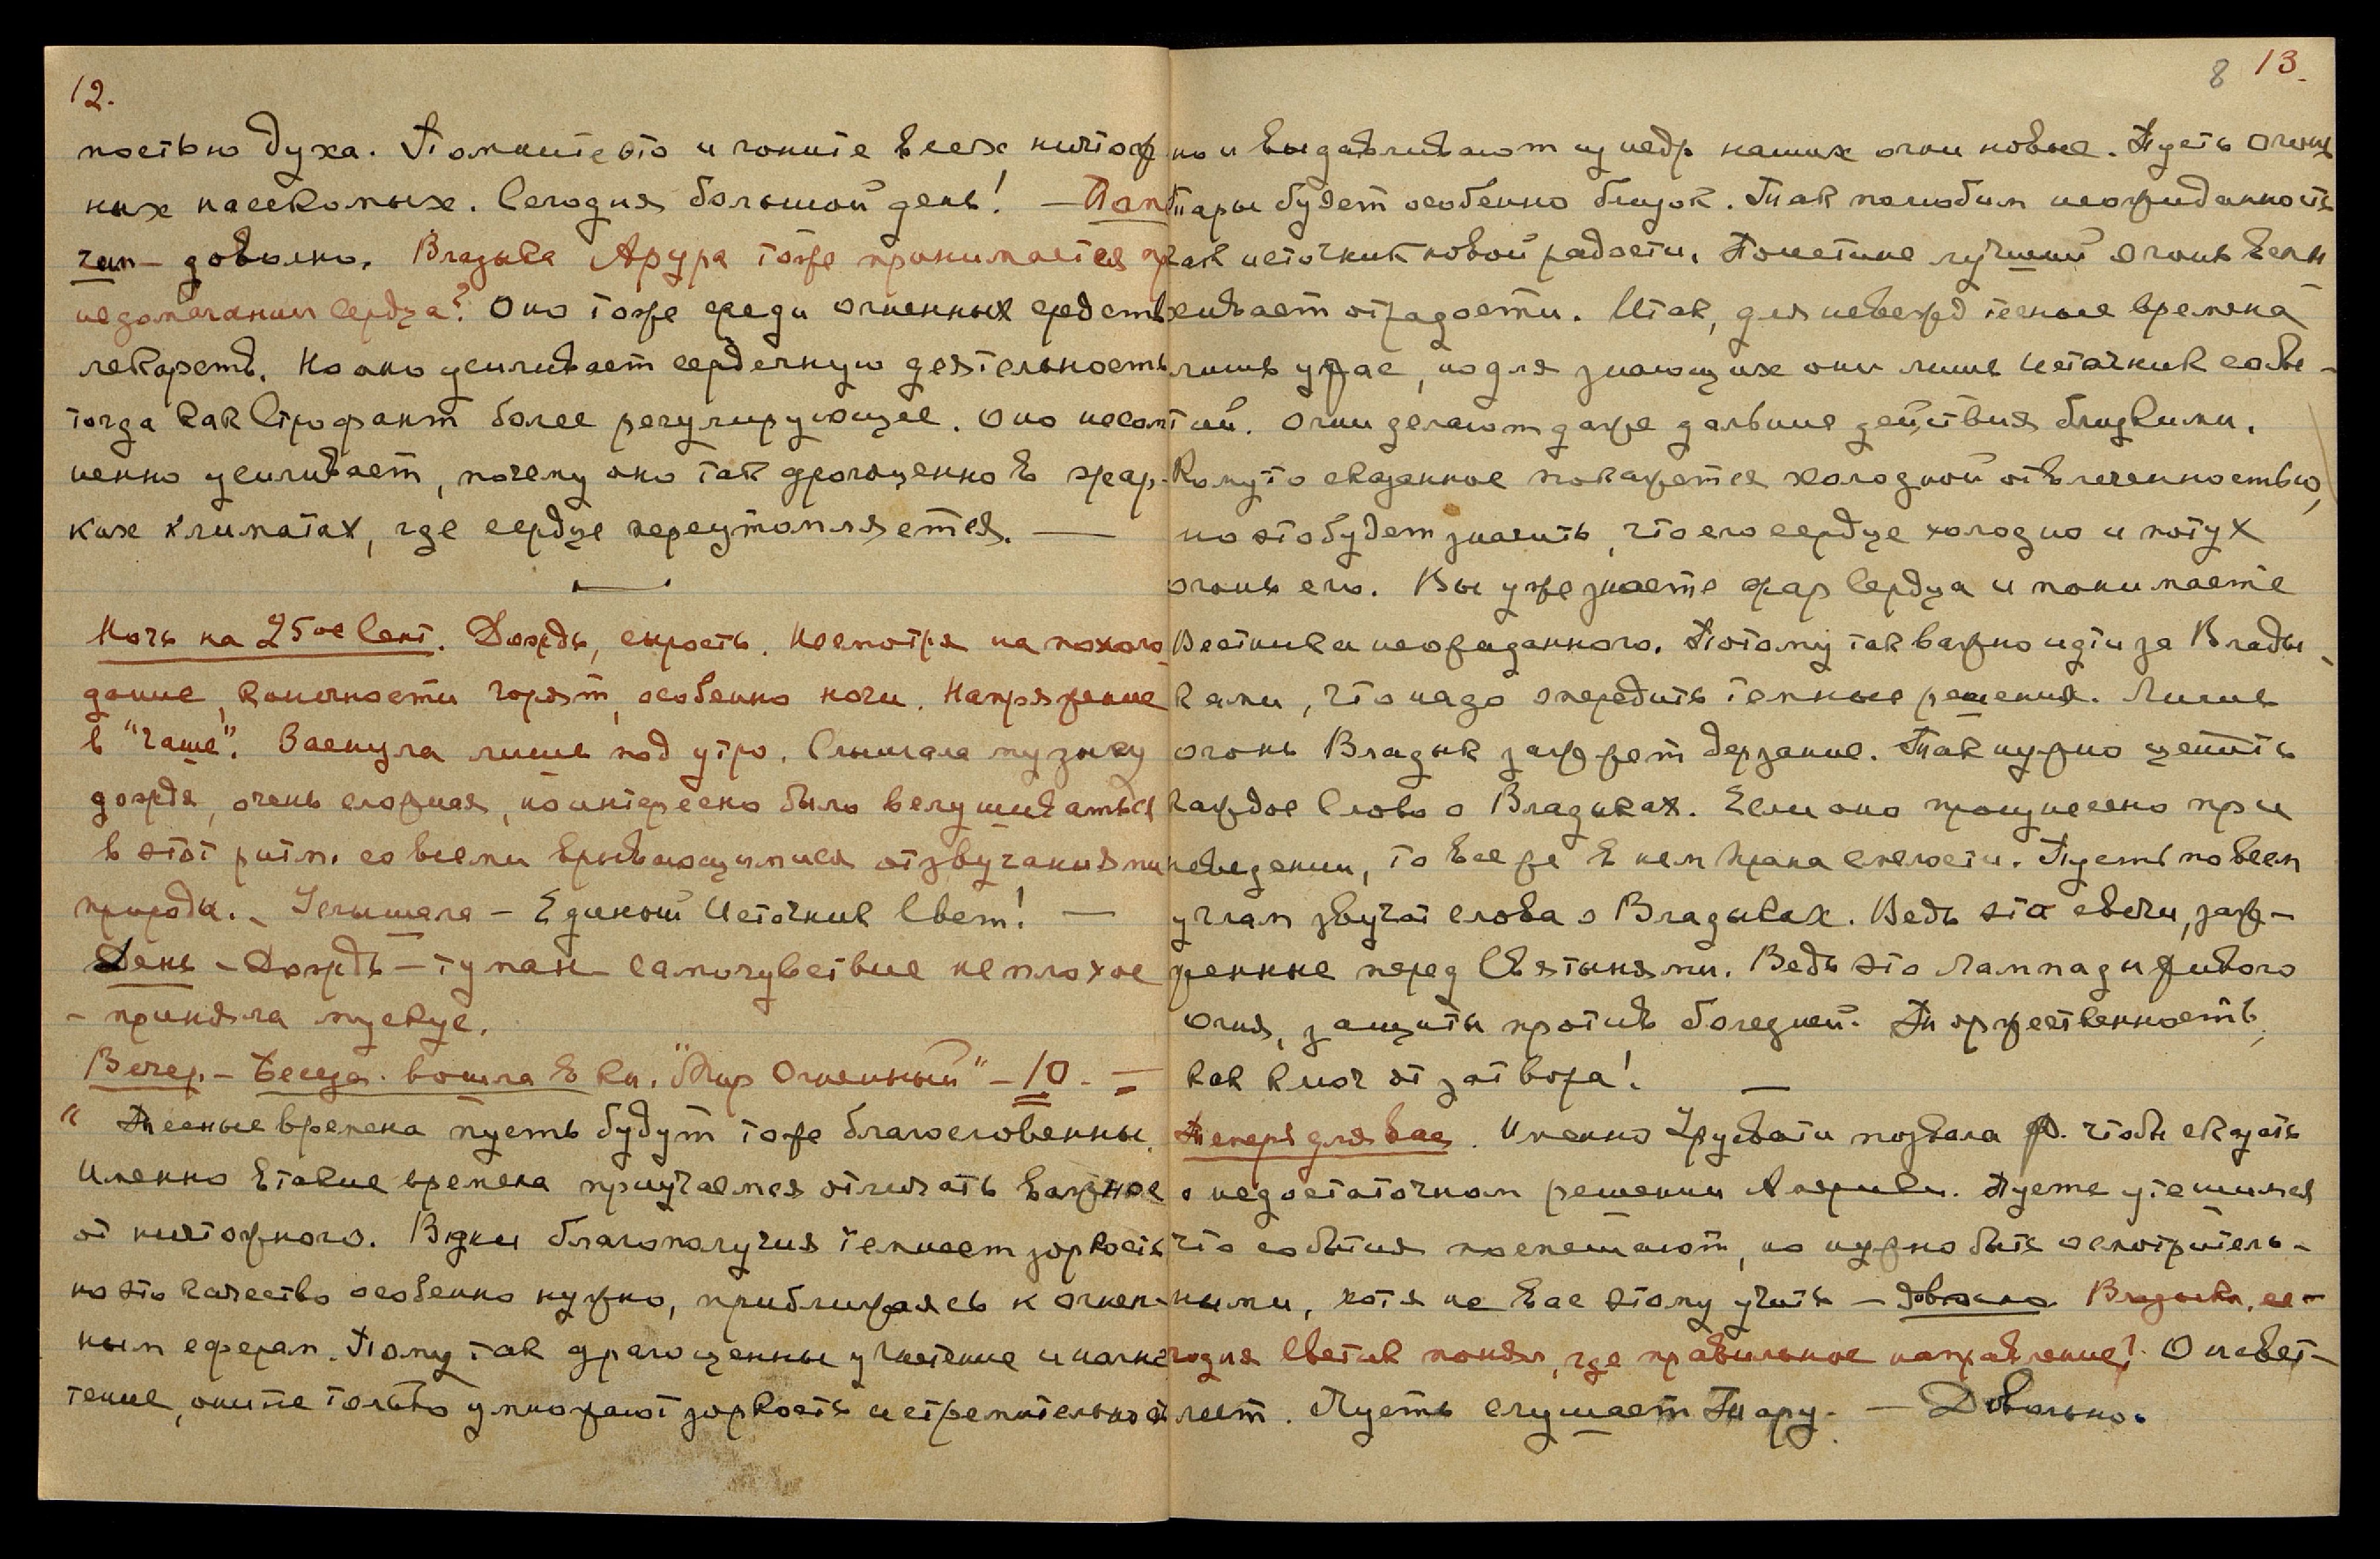 12.
ностью духа. Помните это и гоните всех ничтож
ных насекомых. Сегодня большой день! —
довольно. Владыка Арура тоже принимается пр
недомогании сердца? Оно тоже среди огненных средств
лекарств. Но оно усиливает сердечную деятельность
тогда как Строфант более регулирующее. Оно несом
ненно усиливает, почему оно так драгоценно в жар-
ких климатах, где сердце переутомляется. —
Ночь на 25ое Сент. Дождь, сырость. Несмотря на похоло-
дание, конечности горят, особенно ночи. Напряжение
в "чаше". Заснула лишь под утро. Слышала музыку
дождя, очень сложная, но интересно было вслушиваться
в этот ритм со всеми врывающимися отзвучаниями
природы. – Услышала – Единый Источник Свет! —
День – Дождь – туман – самочувствие не плохое
– приняла мускус.
Вечер. – Беседа. вошла в кн. "Мир Огненный" – 10. –
" Тесные времена пусть будут тоже благословенны.
Именно в такие времена приучаемся отличать важное
от ничтожного. В дни благополучия темнеет зоркость
но это качество особенно нужно, приближаясь к огнен-
ным сферам. Потому так драгоценны угнетение и нагне
тение, они не только умножают зоркость и стремительнос
8 13.
но и выдавливают из недр наших огни новые. Пусть огонь
Тары будет особенно близок. Так полюбим неожиданность
как источник новой радости. Поистине лучший огонь вспы
хивает от радости. Итак, для невежд тесные времена
лишь ужас, но для знающих они лишь источник собы-
тий. Огни делают даже дальние действия близкими.
Кому то сказанное покажется холодной отвлеченностью,
но это будет значить, что его сердце холодно и потух
огонь его. Вы уже знаете жар Сердца и понимаете
Вестника неожиданного. Потому так важно идти за Влады-
ками, что надо опередить темные решения. Лишь
огонь Владык зажжет дерзание. Так нужно ценить
каждое Слово о Владыках. Если оно произнесено при
неведении, то все же в нем прана смелости. Пусть по всем
углам звучат слова о Владыках. Ведь это свечи, заж-
женные перед Святынями. Ведь это лампады живого
огня, защиты против болезней. Торжественность,
как ключ от затвора! —
Теперь для вас. Именно Урусвати позвала Ф. чтобы сказать
о недостаточном решении Америки. Пусть утешимся
что события поспешают, но нужно быть осмотритель-
ными, хотя не вас этому учить – довольно. Владыка, се-
годня Светик понял, где правильное направление? Он свет-
леет. Пусть слушает Тару. — Довольно.